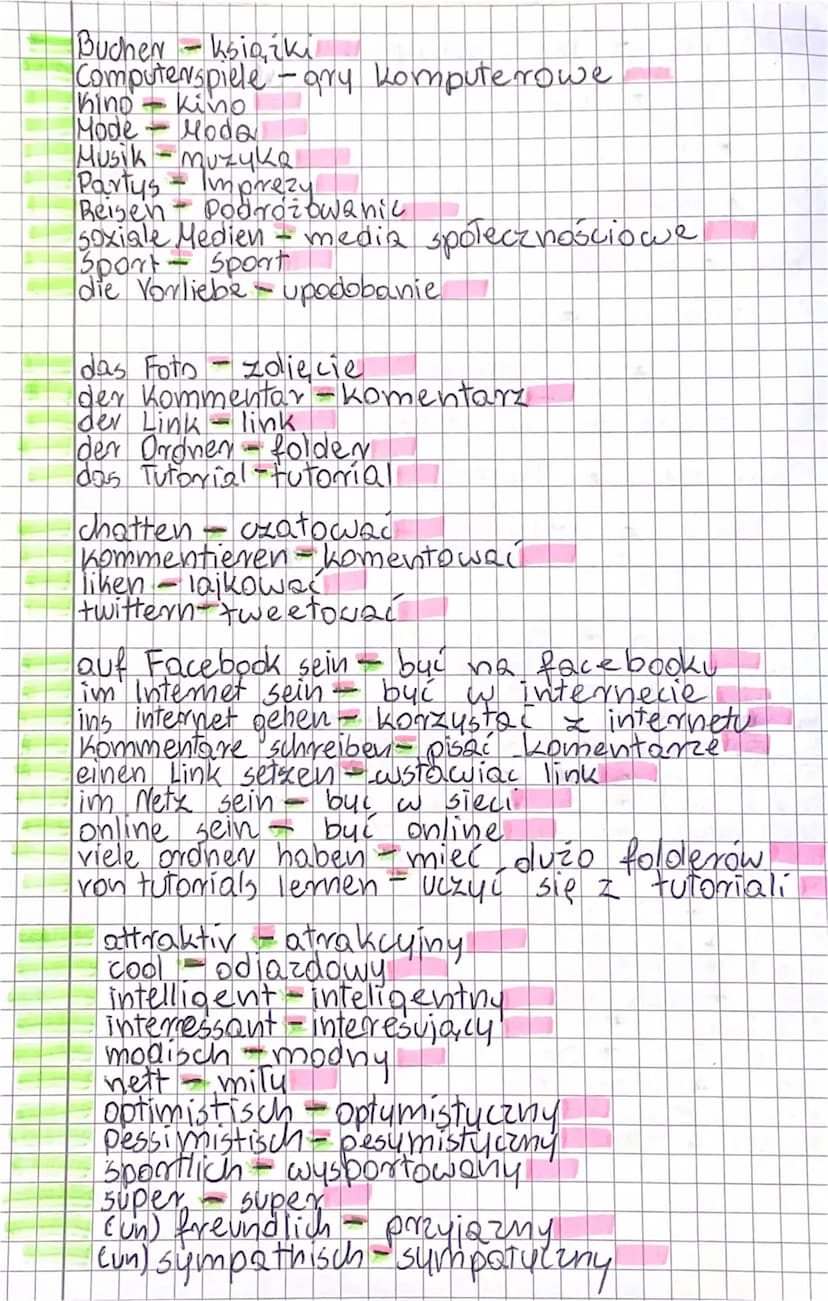 Bucher - książki
Computerspiele - gry komputerowe
Kino - kino
Mode - Moda
Musik - muzyka
Partys - Imprezy
Reisen - Podróżowanie
soziale Medien - media społecznościowe
Sport - Sport
die Vorliebe - upodobanie
das Foto - zdjęcie
der Kommentar - komentarz
der Link - link
der Ordner - folder
das Tutorial - tutorial
chatten - czatować
kommentieren - komentować
liken - lajkować
twittern - tweetować
auf Facebook sein - być na facebooku
im Internet sein - być w internecie
ins internet gehen - korzystać z internetu
Kommentare schreiben - pisać komentarze
einen Link setzen - wstawiac link
im Netz sein - być w sieci
online sein - być online
viele ordner haben - mieć dużo folderów
von tutorials lernen - uczyć się z tutoriali
attraktiv - atrakcyjny
cool - odjazdowy
intelligent - inteligentny
interressant - interesujący
modisch - modny
nett - miły
optimistisch - optymistyczny
pessimistisch - pesymistyczny
sportlich - wysportowany
super - super
(un) freundlich - przyjazny
(un) sympathisch - sympatyczny